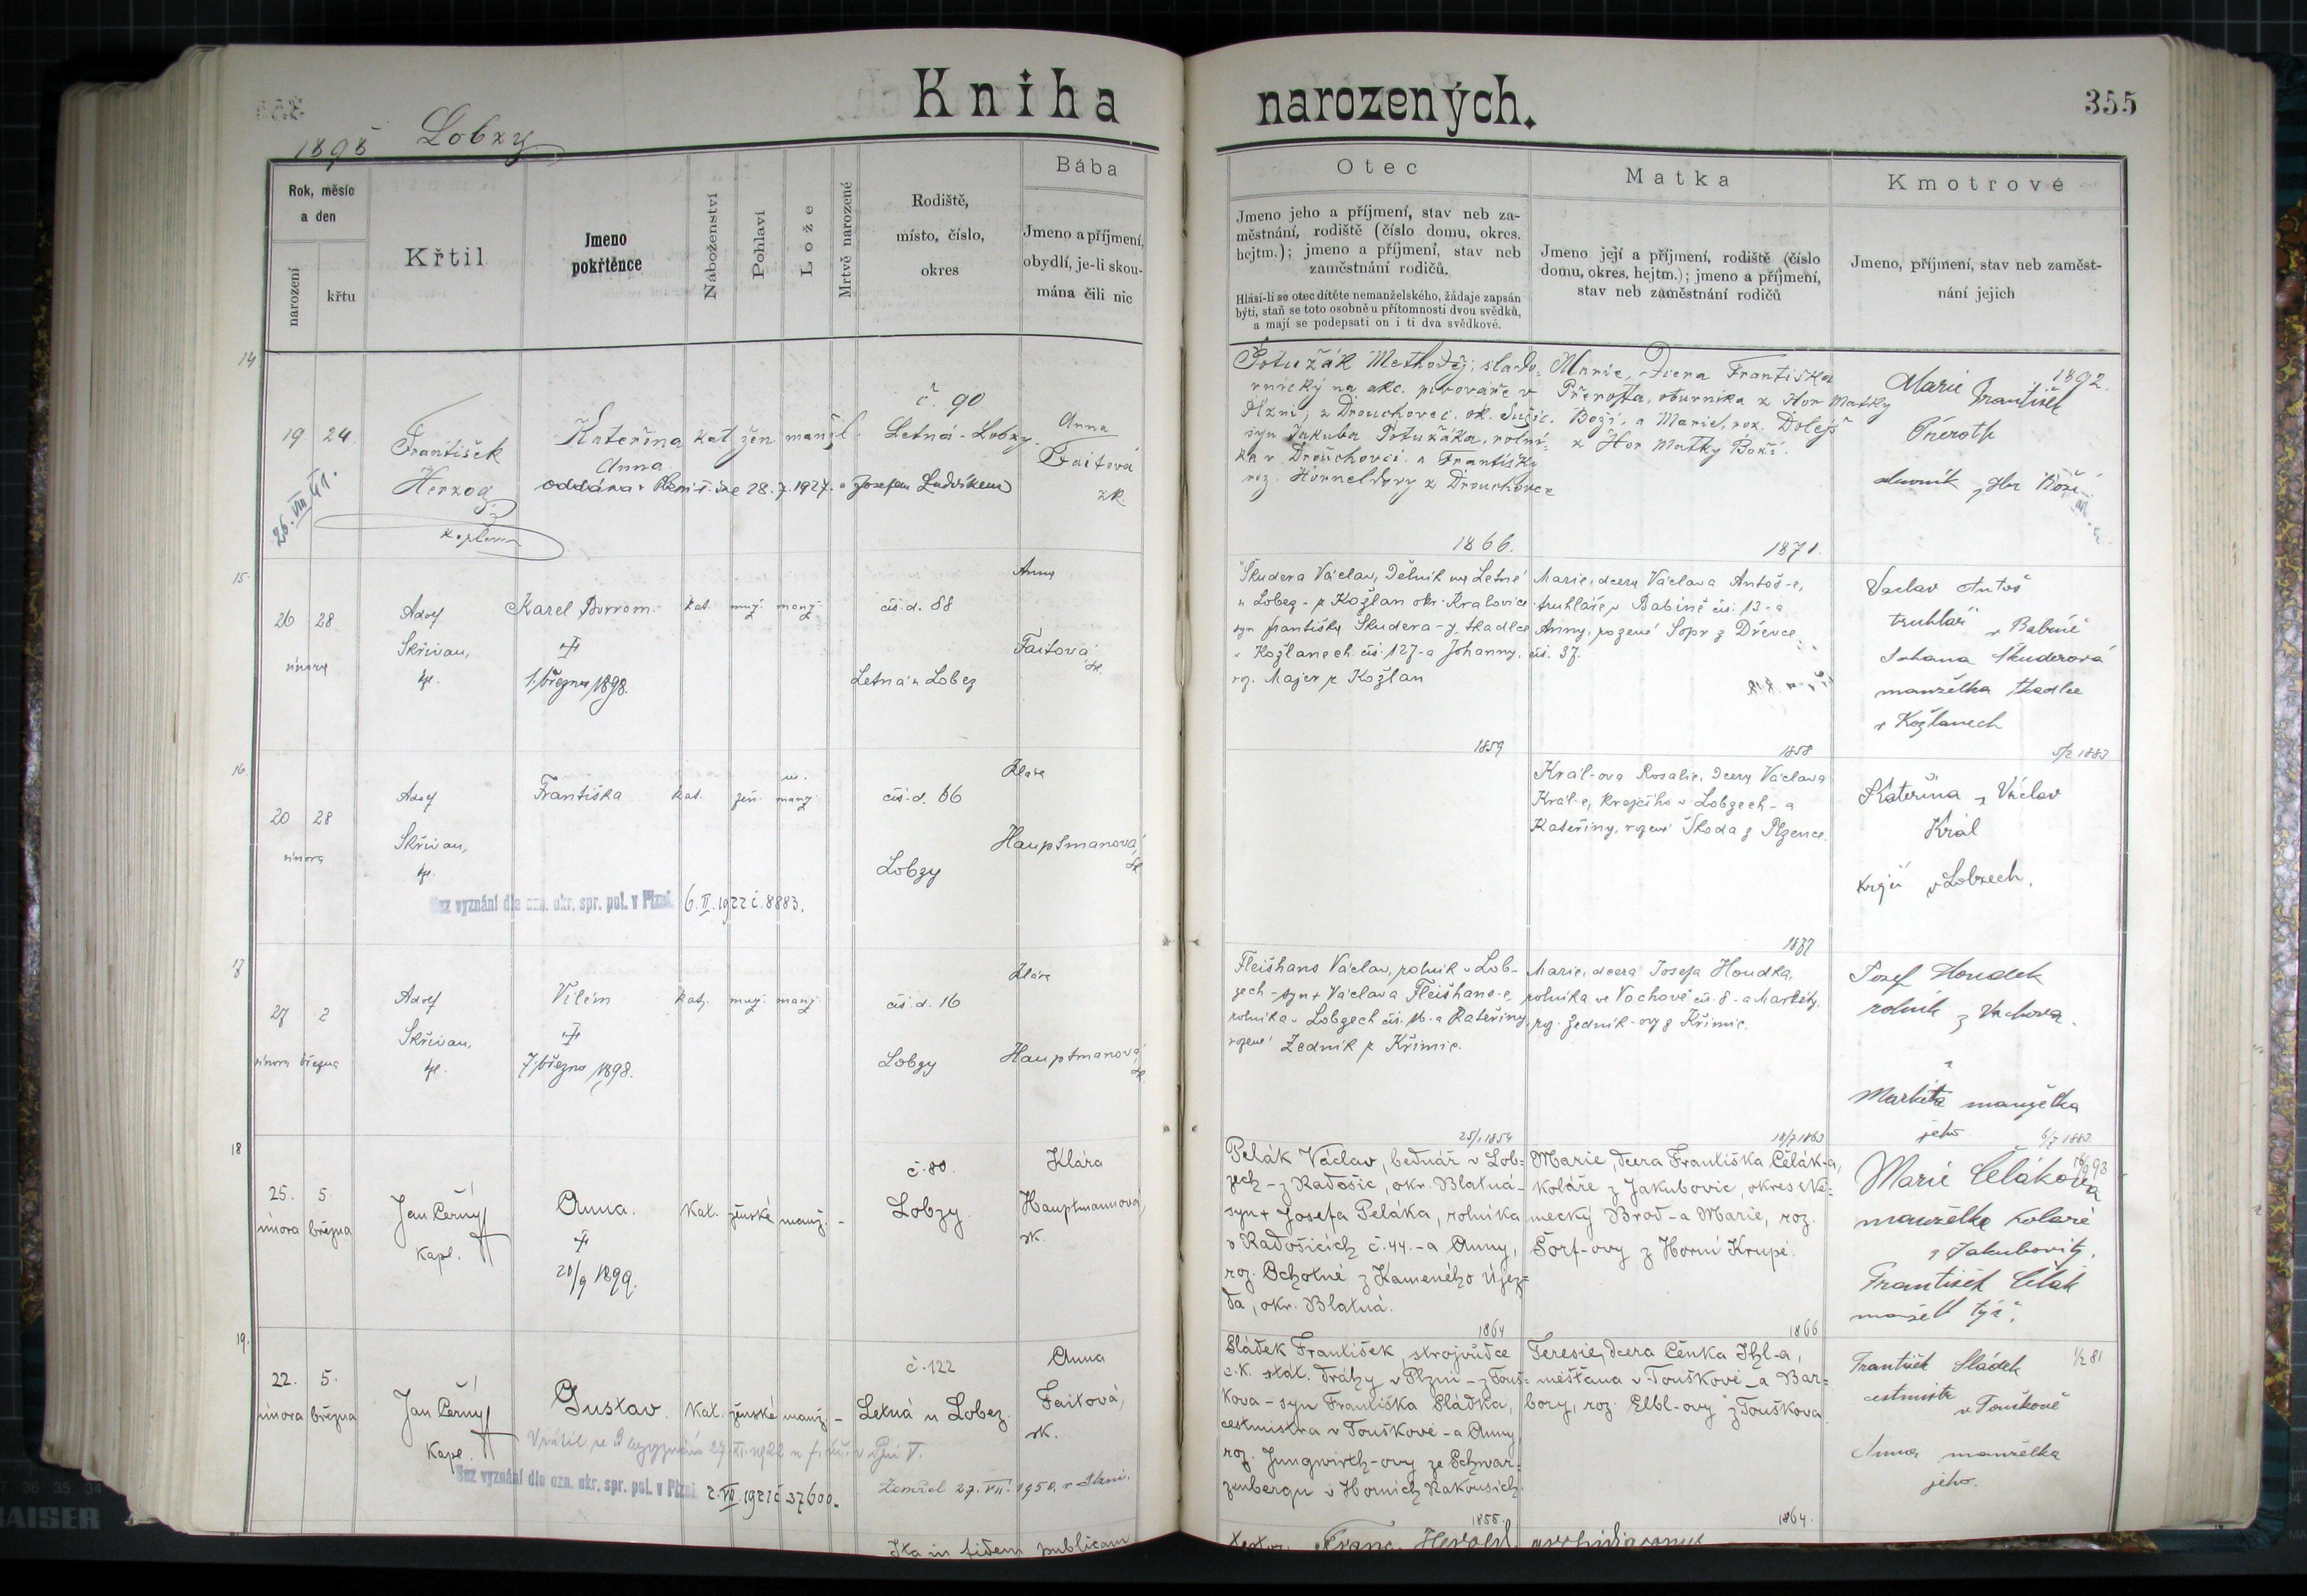 Kniha narozených.
355
1898 Lobzy
Rok, měsíc a den
narození
křtu
Křtil
Jmeno pokřtěnce
Náboženství
Pohlaví
Lože
Mrtvě narozené
Rodiště,
místo, číslo,
okres
Bába
Jmeno a příjmení,
obydlí, je-li skou-
mána čili nic
Otec
Jmeno jeho a příjmení, stav neb za-
městnání, rodiště (číslo domu, okres.
hejtm.); jmeno a příjmení, stav neb
zaměstnání rodičů.
Hlásí-li se otec dítěte nemanželského, žádaje zapsán
býti, staň se toto osobně u přítomnosti dvou svědků,
a mají se podepsati on i ti dva svědkové.
Matka
Jmeno její a příjmení, rodiště (číslo
domu, okres. hejtm.); jmeno a příjmení,
stav neb zaměstnání rodičů
Kmotrové
Jmeno, příjmení, stav neb zaměst-
nání jejich
14
19 24.
František
Herzog
kaplan
Kateřina
Anna
kat. žen manžl.
č. 90
Letná - Lobzy.
Anna
Faitová
zk.
oddána 28.7.1927. s Josefem Ludvíkem
26. VIII 41.
Potužák Methoděj, slado-
vnický na akc. pivováře v
Plzni, z Drouhovei. ok. Sušic.
syn Jakuba Potužáka, rolní-
ka v Drouhovci. a Františky
roz. z Drouhovce
Marie, dcera Františka
Přerosta, z Hor Matky
Boží, a Marie, roz. Dolejš
z Hor Matky Boží.
1892.
Marie František
1866.
1871.
15.
26 28
února
Adolf
Skřivan,
kpl.
Karel Borrom.
1. března 1898.
kat. muž. manž.
čís. d. 88
Letná u Lobez
Anna
Faitová
zk.
Škudera Václav, dělník na Letné
u Lobez - z Kožlan okr. Kralovice
syn Františka Škudera-y, tkadlce
v Kožlanech čís. 127 - a Johanny,
roz. Majer z Kožlan
Marie, dcera Václava Antoš-e,
truhláře v Babíně čís. 13 - a
Anny, rozené Sopr z Dřevce
čís. 37.
Vaclav Antoš
truhlář v Babíně
Johana Škuderová
manželka tkadlce
v Kožlanech
1859
1858
5/2 1883
16.
20 28
února
Adolf
Skřivan,
kpl.
Františka
kat. žen. manž.
čís. d. 66
Lobzy
Klára
Hauptmanová,
zk.
Bez vyznání dle ozn. okr. spr. pol. v Plzni 6. II. 1922 č. 8883.
Král-ova Rosalie, dcera Václava
Král-e, krejčího v Lobzech - a
Kateřiny, rozené Škoda z Plzence.
Kateřina a Václav
Král
krejčí v Lobzech.
1877
17
27 2
února března
Adolf
Skřivan,
kpl.
Vilém
7. března 1898.
kat. muž. manž.
čís. d. 16
Lobzy
Klára
Hauptmanová,
zk.
Fleišhans Václav, rolník v Lob-
zech - syn + Václava Fleišhans-e,
rolníka v Lobzech čís. 16 - a Kateřiny,
rozené Zedník z Křimic.
Marie, dcera Josefa Houdka,
rolníka ve Vochově čís. 8 - a Markéty,
roz. Zedník-ovy z Křimic.
Josef Houdek
rolník z Vochova.
a
Markéta manželka
jeho.
25/1 1854
10/7 1863
6/7 1883.
18
25. 5.
února března
Jan Černý
kapl.
Anna.
20/9 1899.
Kat. ženské manž. -
č. 80.
Lobzy.
Klára
Hauptmannová,
zk.
Pelák Václav, bednář v Lob=
zech - z Radošic, okr. Blatná -
syn + Josefa Peláka, rolníka
v Radošicích č. 44. - a Anny,
roz. Ochotné z Kameného Újez=
da, okr. Blatná.
Marie, dcera Františka Čelák-a,
koláře z Jakubovic, okres Ně=
mecký Brod - a Marie, roz.
Šorf-ovy z Horní Krupé.
Marie Čeláková
manželka koláře
z Jakubovitz.
František Čelák
manžel týž.
1864
1866
19.
22. 5.
února března
Jan Černý
kapl.
Gustav.
Kat. ženské manž. -
č. 122
Letná u Lobez.
Anna
Faitová,
zk.
Bez vyznání dle ozn. okr. spr. pol. v Plzni 2. VII. 1921 č 37600.
Zemřel 27. VII. 1950. v Plzni.
Sládek František, strojvůdce
c.k. stát. dráhy v Plzni - z Touš=
kova - syn Františka Sládka,
cestmistra v Touškově - a Anny
roz. Jungwirth-ovy ze Schwar=
zenbergu v Horních Rakousích.
Teresie, dcera Čeňka Ihl-a,
měšťana v Touškově - a Bar=
bory, roz. Elbl-ovy z Touškova.
1/2 81
František Sládek
cestmistr
v Touškově
Anna manželka
jeho.
1855.
1864.
Ita in fidem publicam
testor. Franc. Herold archidiaconus